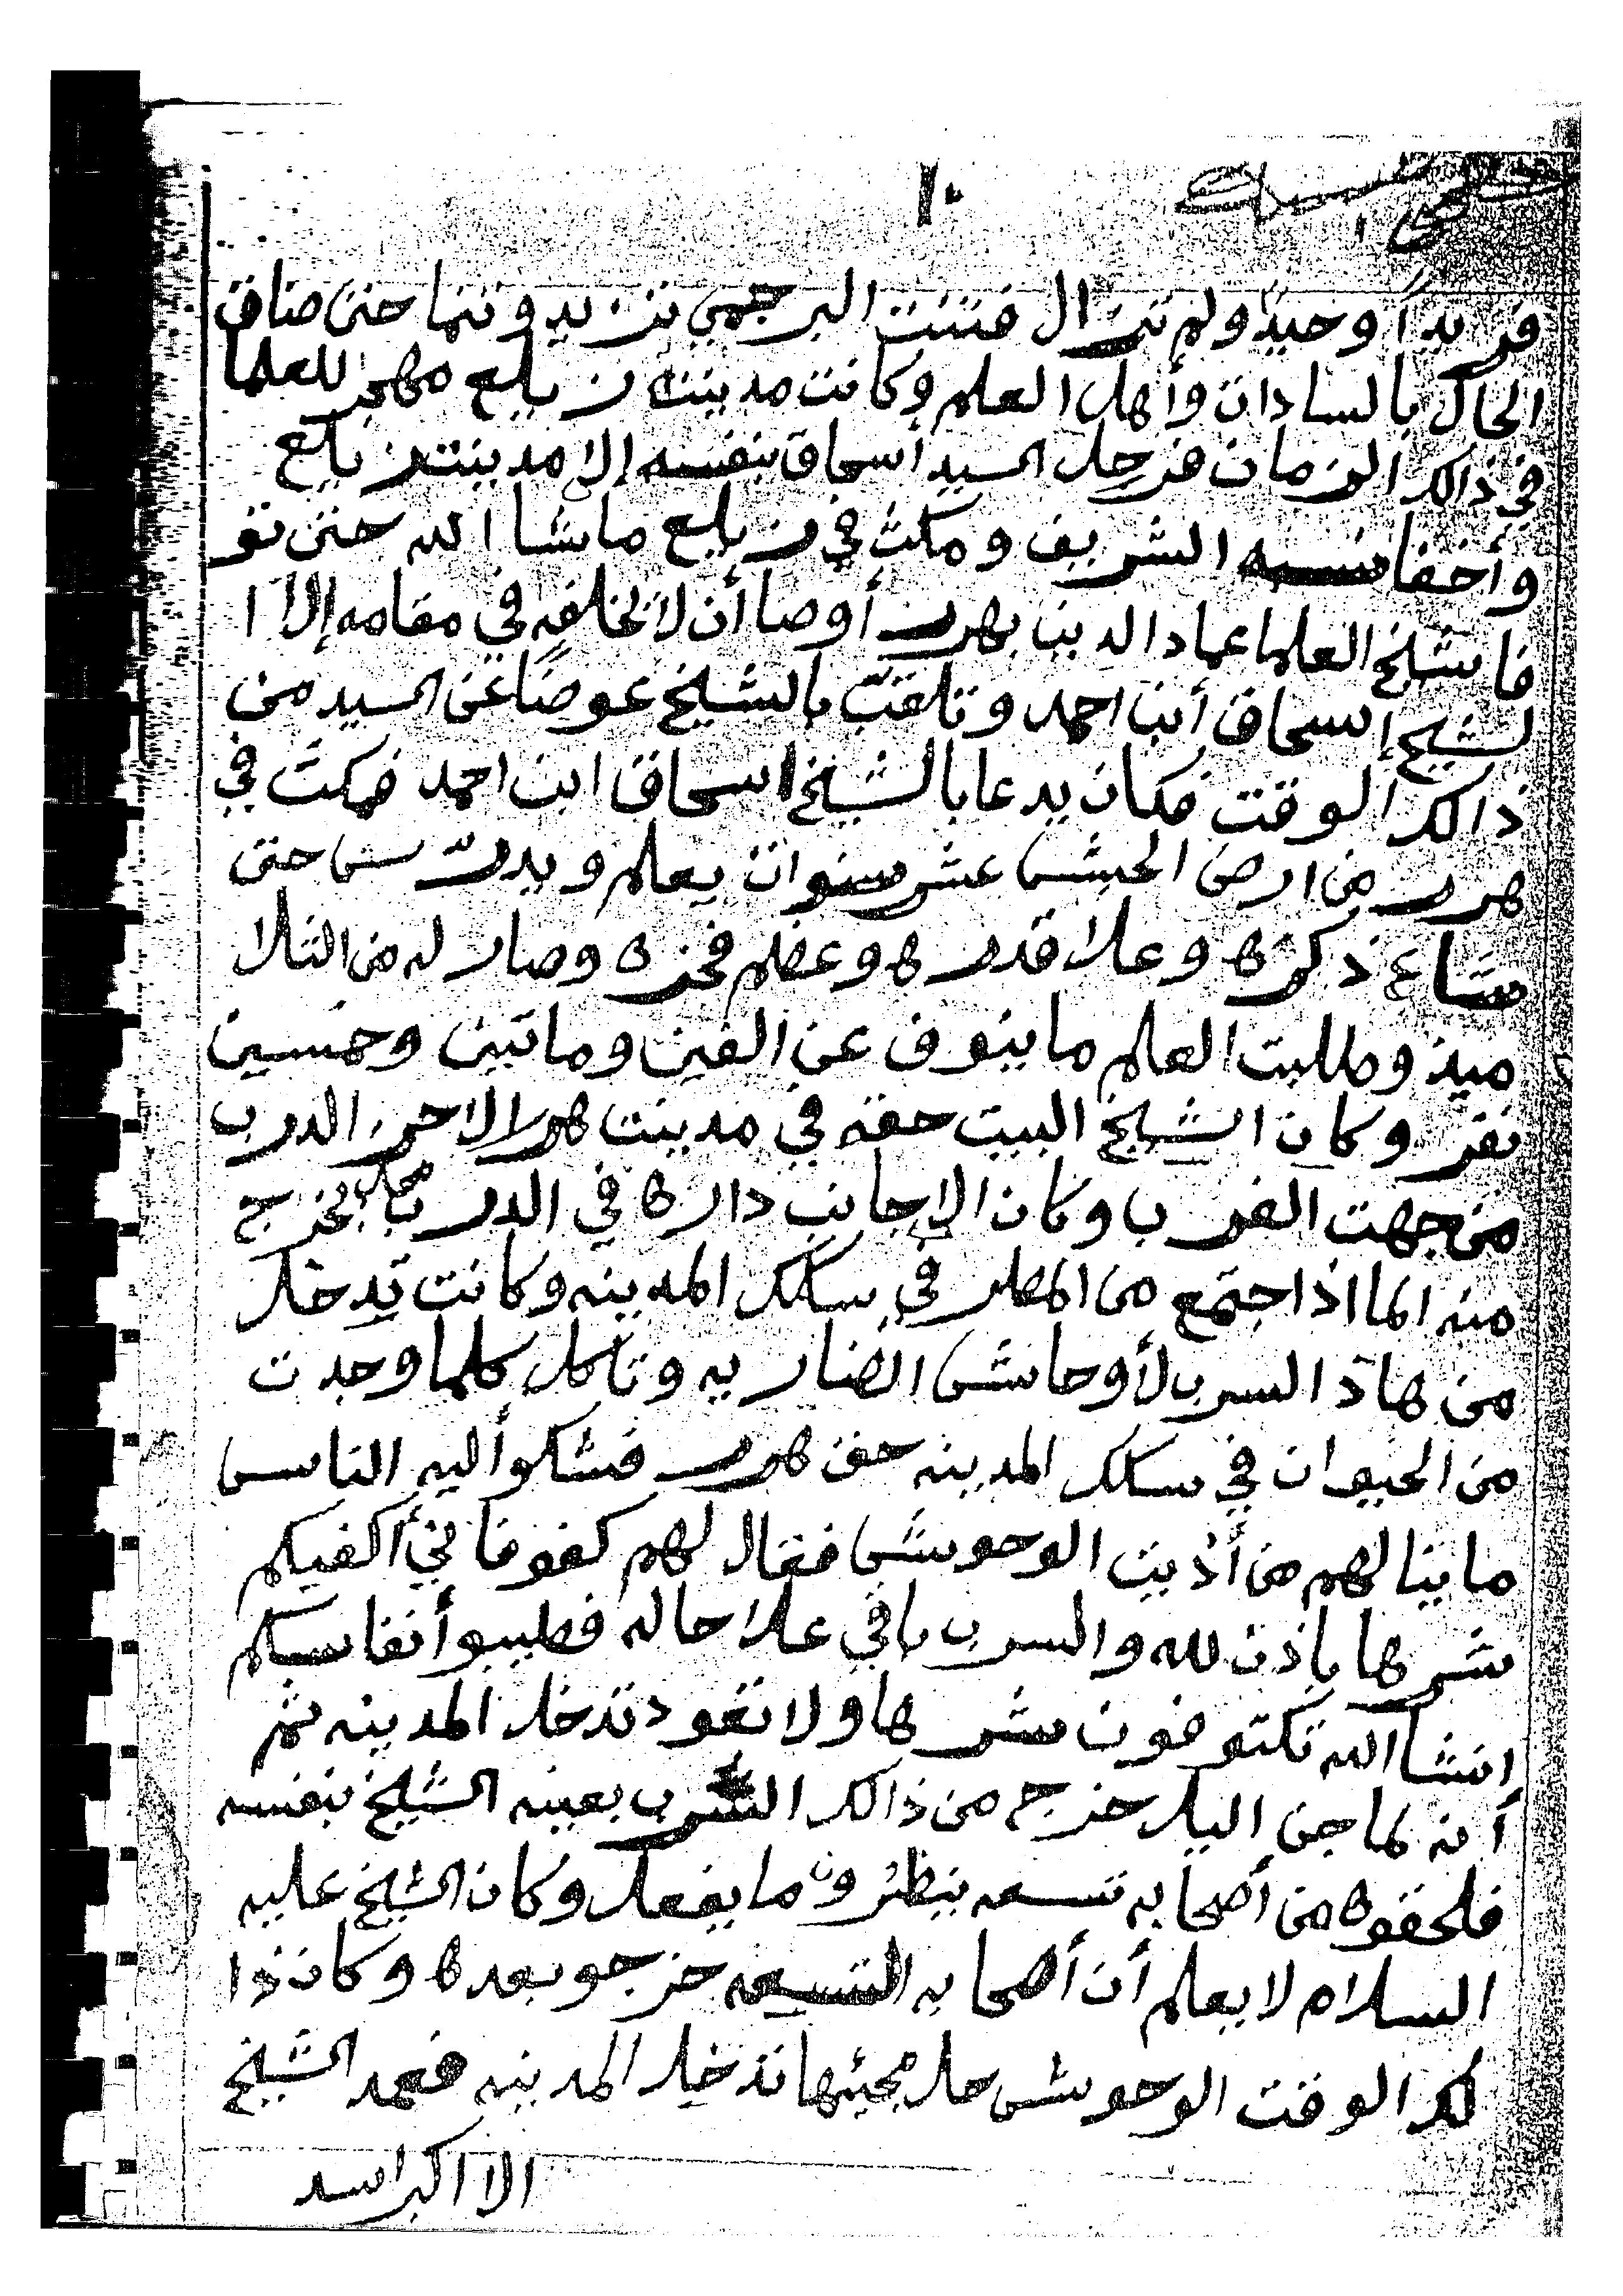 ١٠
فريداً وحيداً ولم تزال فتنت البرجمي تزيد وتنما حتى ضاق
الحال بالسادات وأهل العلم وكانت مدينت زيلع مهجر للعلما
في ذالك الزمان فرحل السيد أسحاق بنفسه إلا مدينت زيلع
وأخفا نسبه الشريف ومكث في زيلع ماشا الله حتى تو
فا شيخ العلما عماد الدين بهرر أوصا أن لا يخلفه في مقامه إلا ا
لشيخ إسحاق أبن احمد وتلقب بالشيخ عوضاً عن السيد من
ذالك الوقت فكان يدعا بالشيخ اسحاق ابن احمد فمكث في
هرر من ارض الحبش عشر سنوات يعلم ويدرّس حتى
شاع ذكره وعلا قدره وعظم فخره وصار له من التلا
ميذ وطلبت العلم ما ينوف عن الفين وماتين وخمسين
نفر وكان الشيخ البيت حقه في مدينت هرر الاخر الدرب
من جهت الغرب وكان الا جانب داره في الدرب محل يخرج
منه الما اذا اجتمع من المطر في سكك المدينه وكانت تدخل
من هاذ السرب لأوحاش الضاريه وتاكل كلما وجدت
من الحيوان في سكك المدينه حق هرر فشكو أليه الناس
ما ينالهم من أذيت الوحوش فقال لهم كفو فاني أكفيكم
شرها باذن لله والسرب باقي علا حاله فطيبو أنفاسكم
إنشا الله تكتوفون شرها ولا تعود تدخل المدينه ثم
أنه لما جن اليل خرج من ذالك السرب بعينه الشيخ بنفسه
فلحقوه من أصحابه تسعه ينظرون ما يفعل وكان الشيخ عليه
السلام لا يعلم أن أصحابه التسعه خرجو بعده وكان ذا
لك الوقت الوحوش حل مجيئها تدخل المدينه فعمد الشيخ
الا اكبر اسد